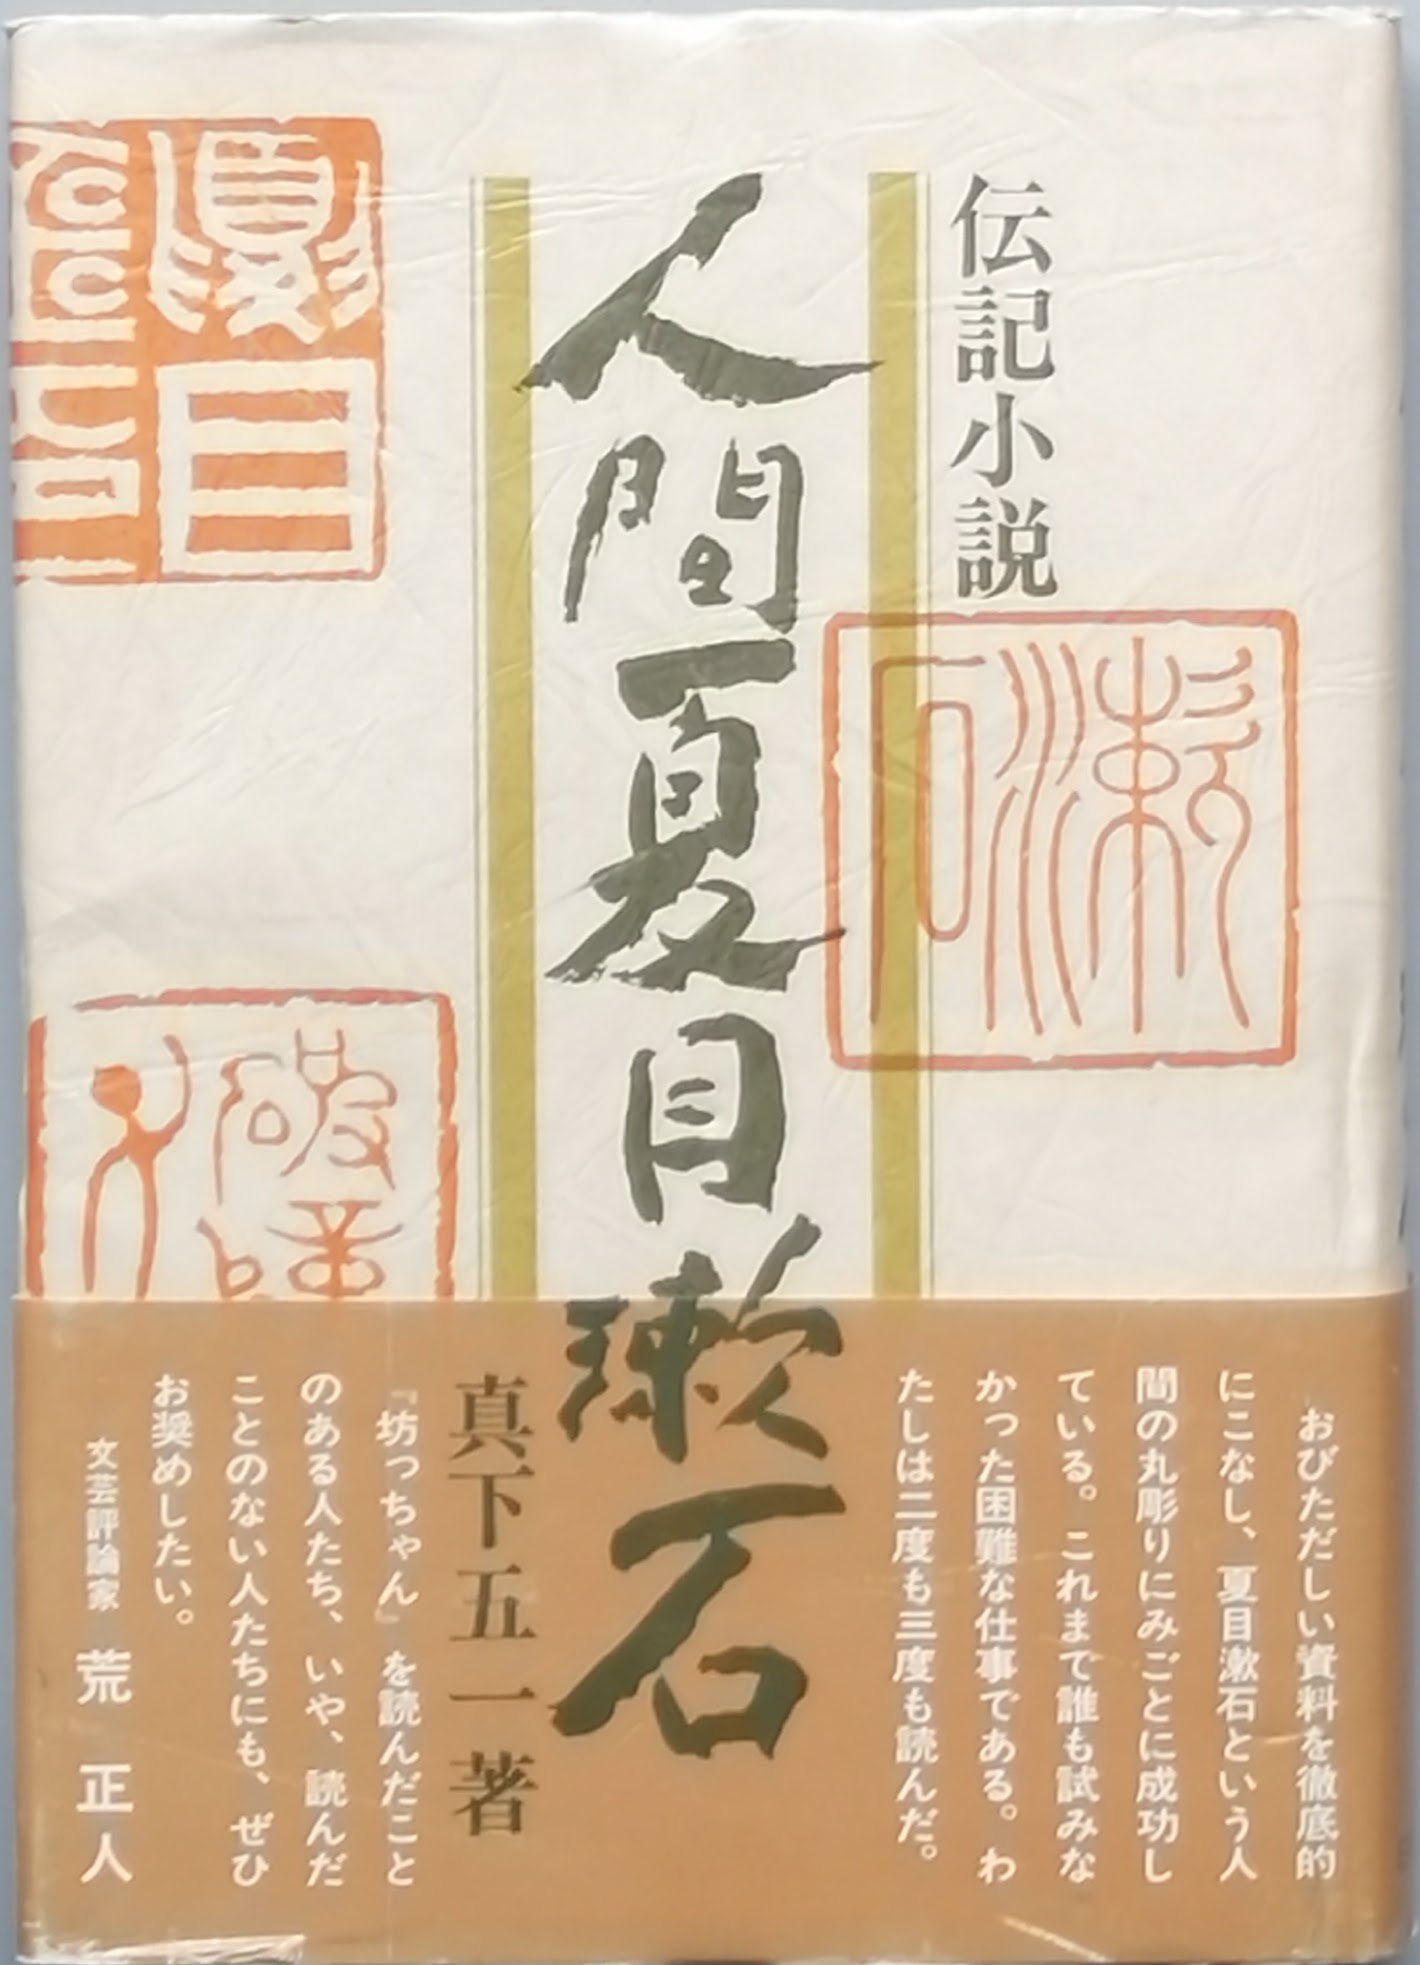 伝記小説
人間夏目漱石
真下五一著
おびただしい資料を徹底的
にこなし、夏目漱石という人
間の丸彫りにみごとに成功し
ている。これまで誰も試みな
かった困難な仕事である。わ
たしは二度も三度も読んだ。
『坊っちゃん』を読んだこと
のある人たち、いや、読んだ
ことのない人たちにも、ぜひ
お奨めしたい。
文芸評論家 荒 正人
漱石
夏目